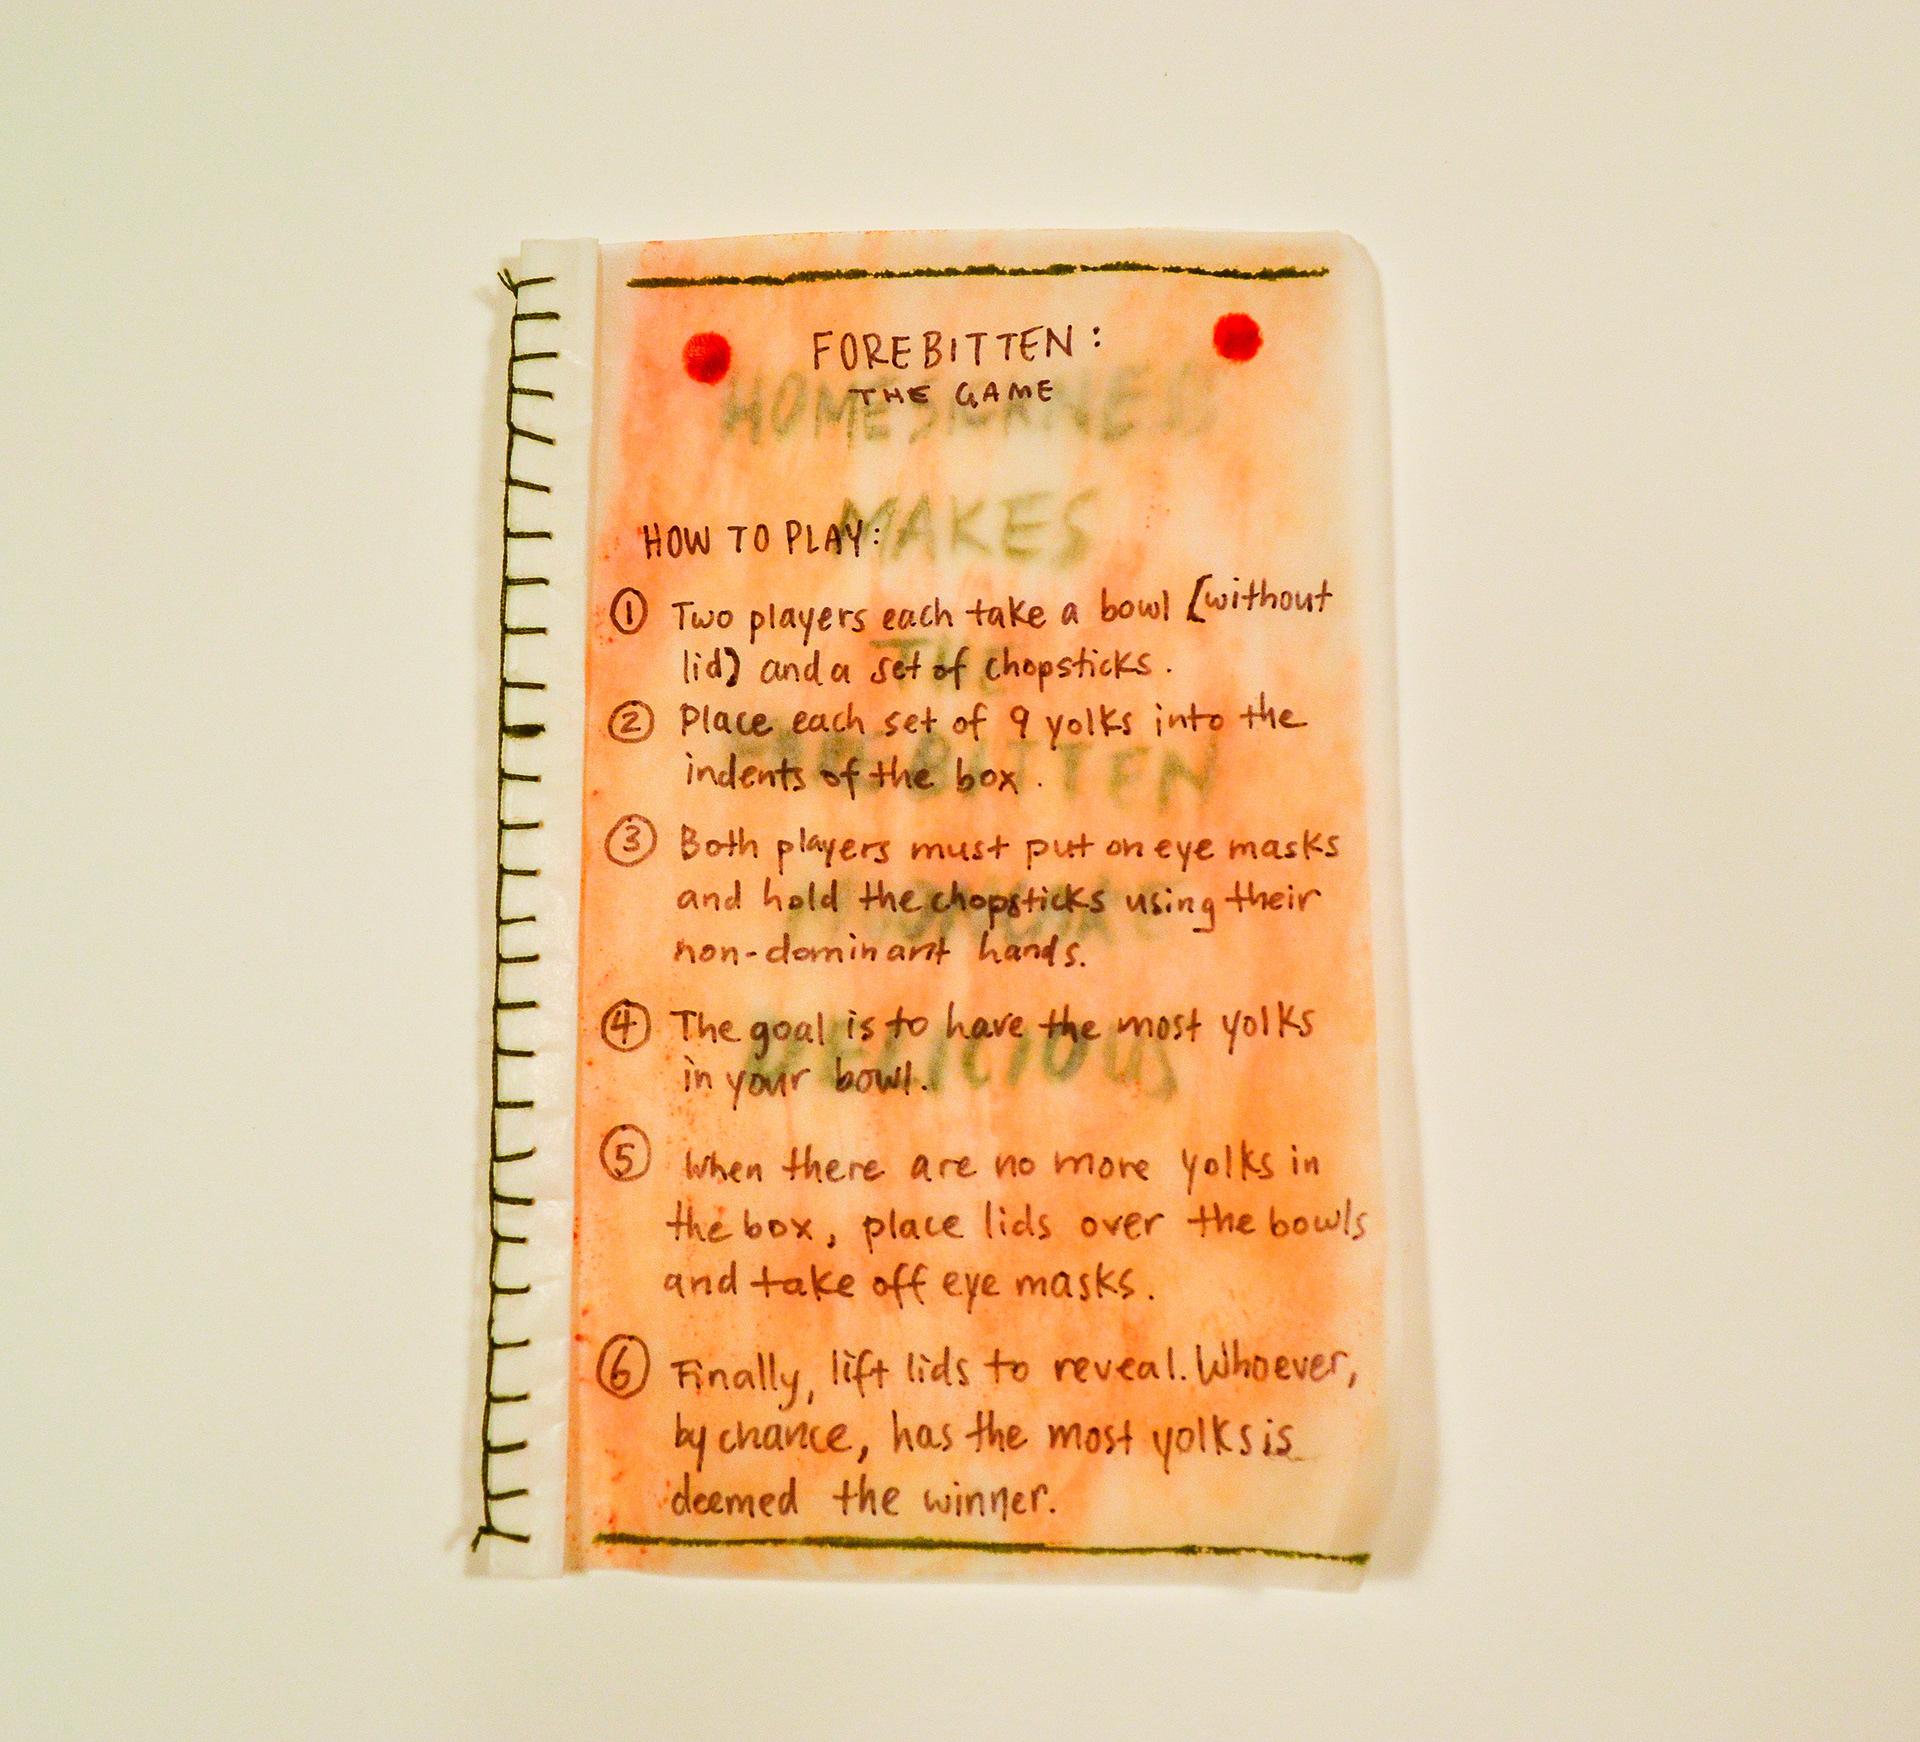 FOREBITTEN:
THE GAME
HOMESICKNESS
MAKES
HOW TO PLAY:
① Two players each take a bowl [without
lid] and a set of chopsticks.
THE
② Place each set of 9 yolks into the
indents of the box.
FOREBITTEN
③ Both players must put on eye masks
and hold the chopsticks using their
non-dominant hands.
MOONCAKE
④ The goal is to have the most yolks
in your bowl.
DELICIOUS
⑤ When there are no more yolks in
the box, place lids over the bowls
and take off eye masks.
⑥ Finally, lift lids to reveal. Whoever,
by chance, has the most yolks is
deemed the winner.